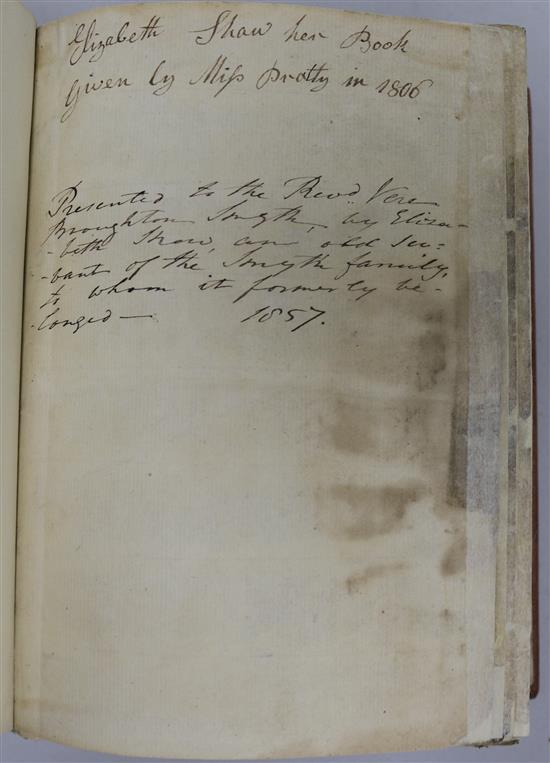 Elizabeth Shaw her Book
Given by Miſs Pratty in 1806
Presented to the Revd. Vere
Broughton Smyth, by Eliza-
-beth Shaw, an old Ser-
-vant of the Smyth family,
to whom it formerly be-
-longed — 1857.